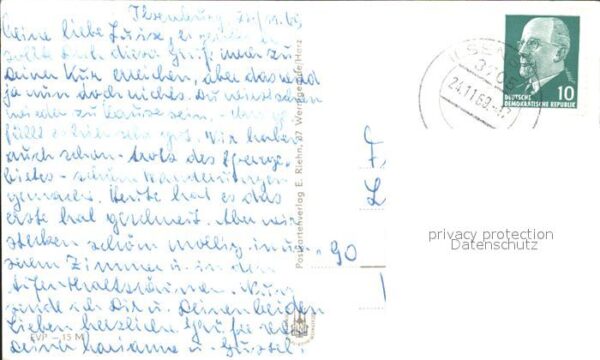 Ilsenburg, 22/11.69
Meine liebe Luise,
sollte Dich dieser Gruß immer zu
Deiner Kur erreichen, aber das wird
ja nun doch nichts. Du wirst schon
wieder zu Hause sein,
füllt es sehr gut. Wir haben
auch schon trotz des Sperrge-
bietes schön Wanderungen
gemacht. Heute hat es das
erste Mal geschneit. Aber wir
stecken schön mollig in un-
serem Zimmer u. in den
Aufenthaltsräumen. Nun
Dir u. Deinen beiden
Lieben herzliche Grüße von
Deiner Marianne u.
EVP -.15 M
Postkartenverlag E. Riehn, 37 Wernigerode/Harz
90
3705
24.11.69
DEUTSCHE
DEMOKRATISCHE REPUBLIK
10
privacy protection
Datenschutz